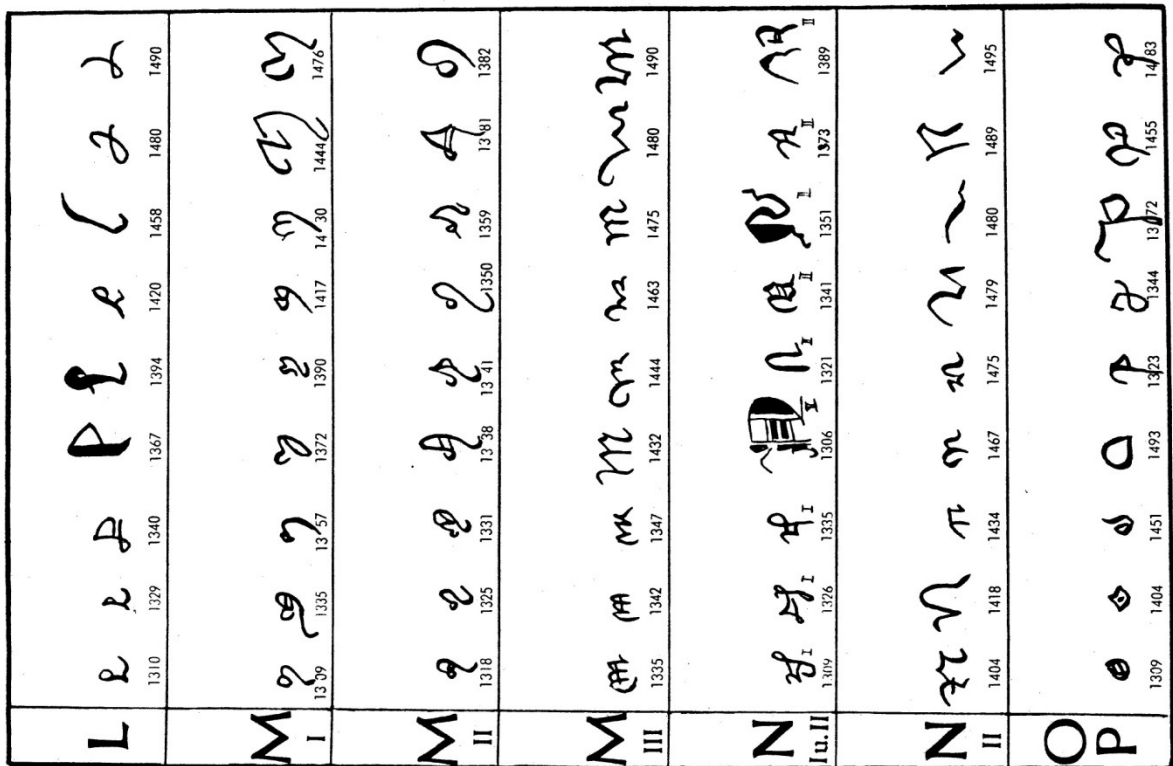 L
1310 1329 1340 1367 1394 1420 1458 1480 1490
M I
1309 1335 1357 1372 1390 1417 1430 1444 1476
M II
1318 1325 1331 1338 1341 1350 1359 1381 1382
M III
1335 1342 1347 1432 1444 1463 1475 1480 1490
N I u. II
I I I I I II II II II
1309 1326 1335 1306 1321 1341 1351 1373 1389
N II
1404 1418 1434 1467 1475 1479 1480 1489 1495
O P
1309 1404 1451 1493 1323 1344 1372 1455 1483